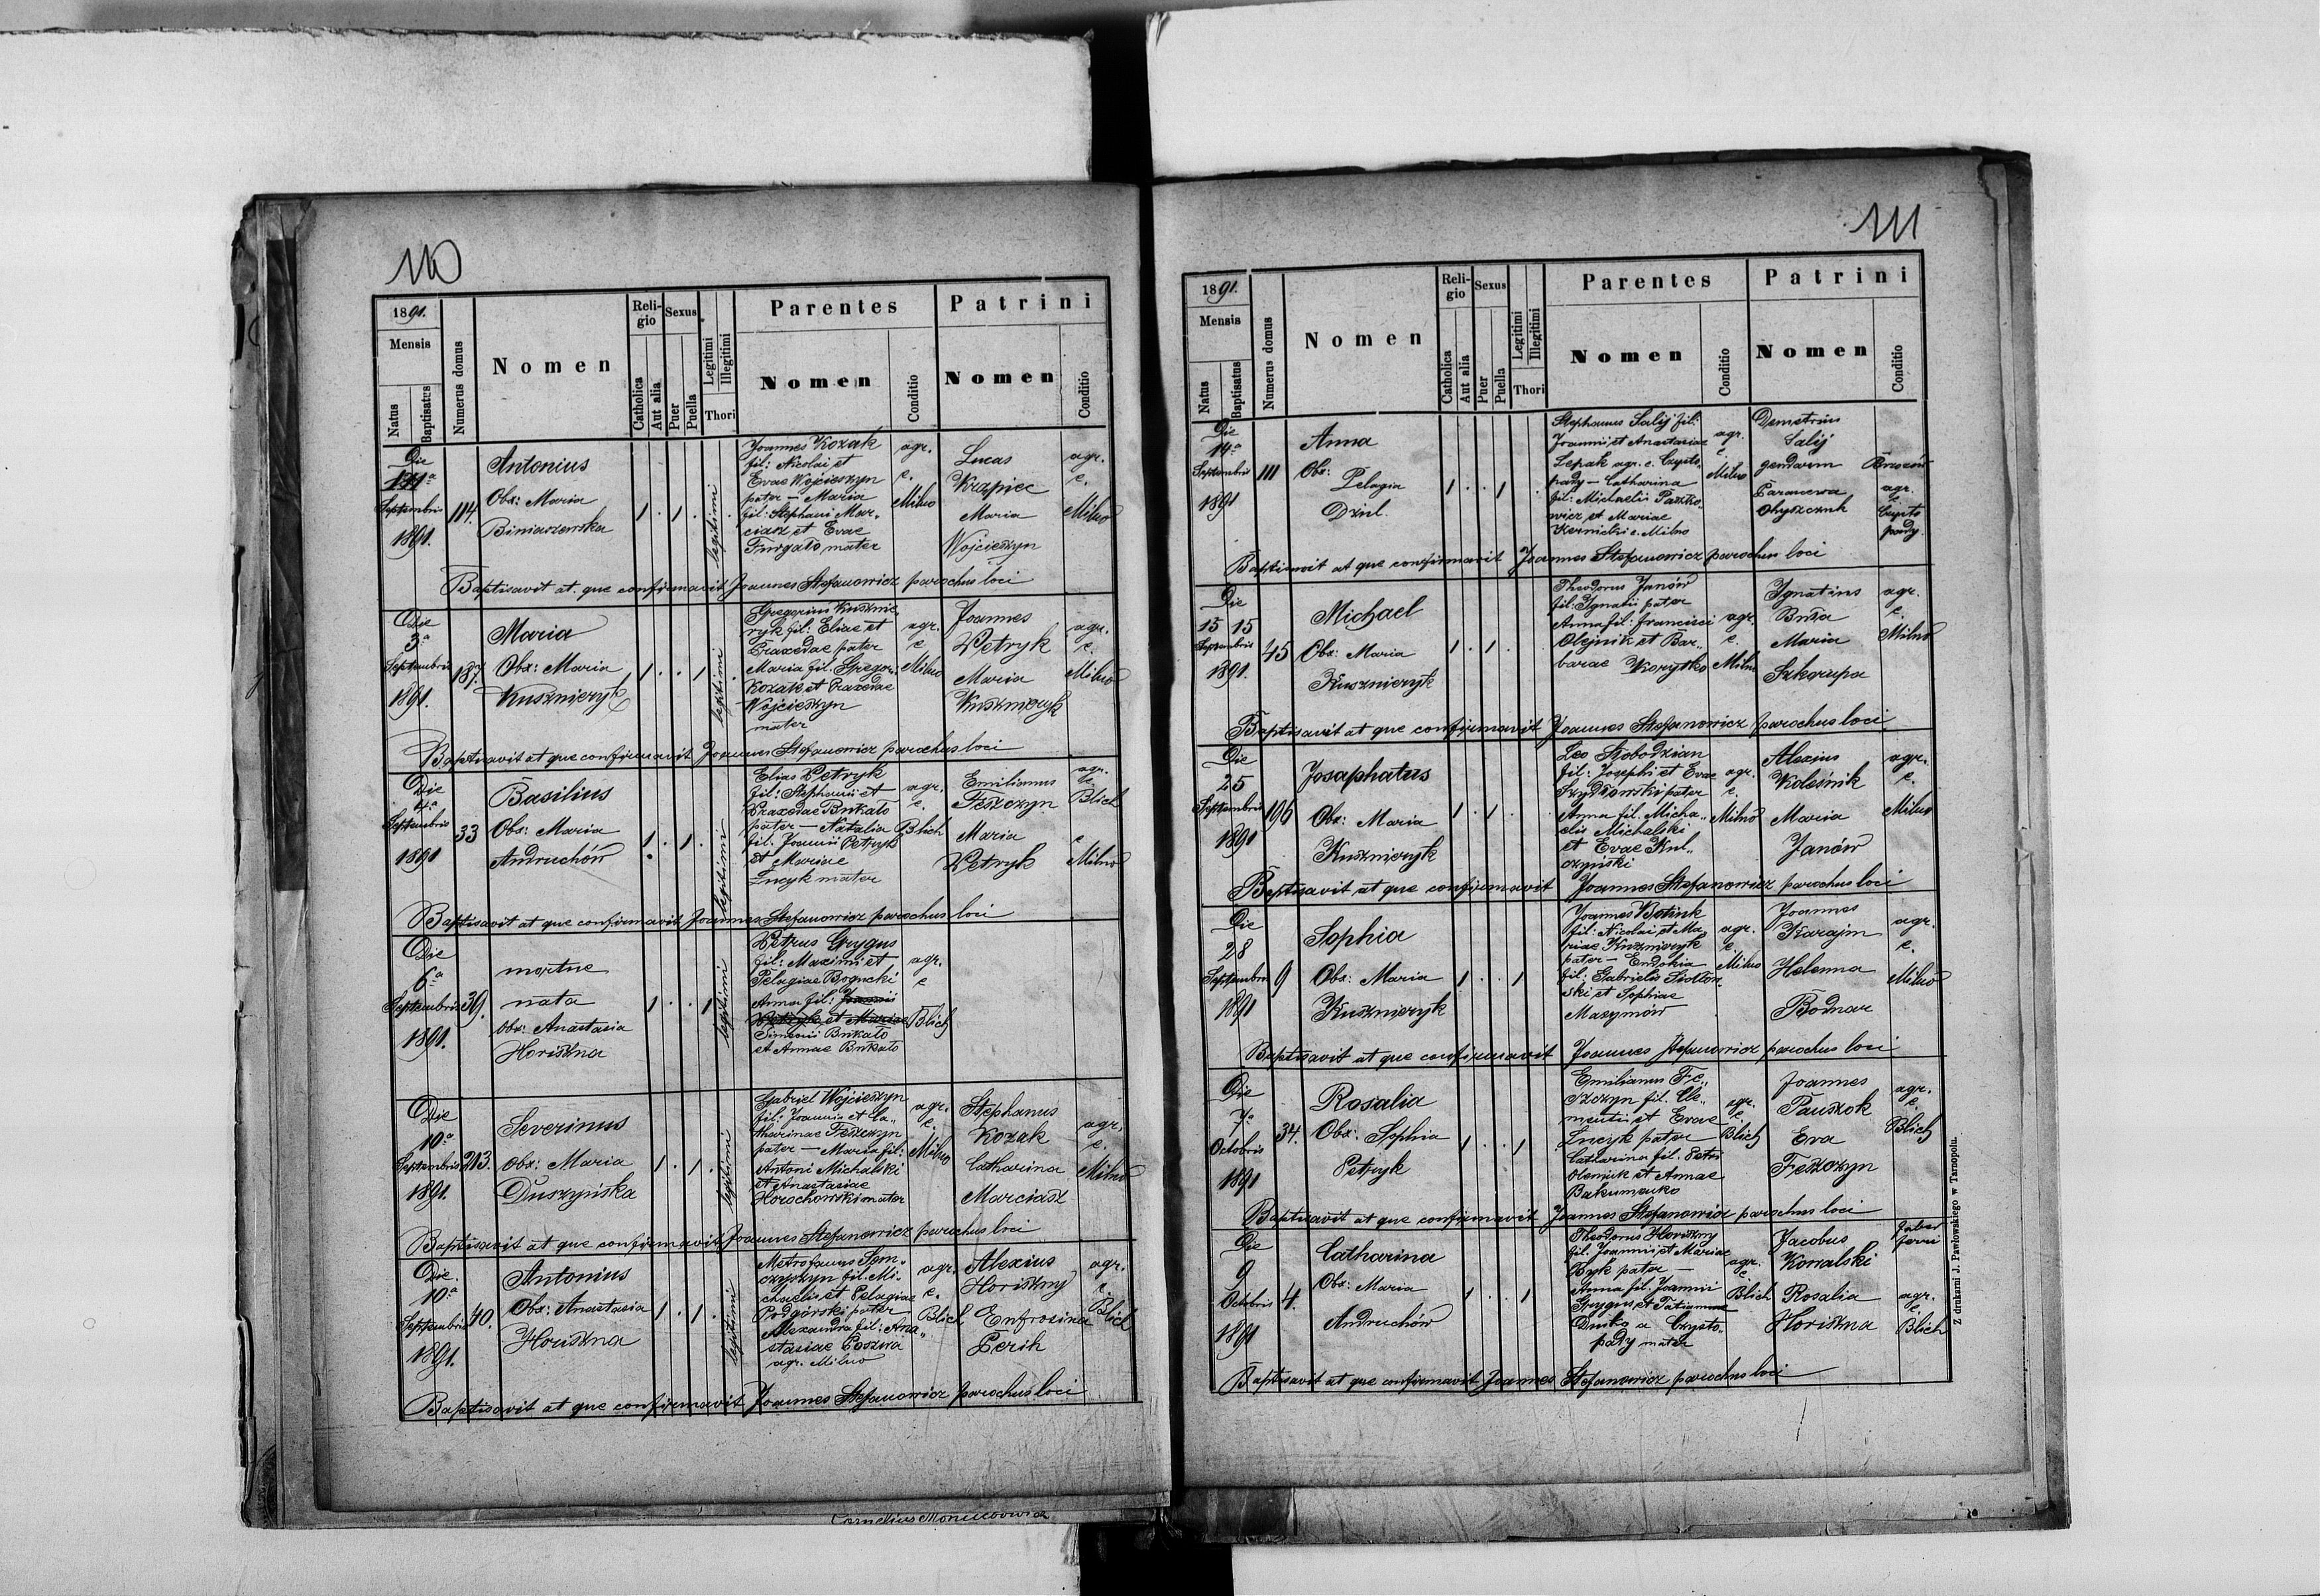 110
1891.
Mensis
Natus
Baptisatus
Numerus domus
Nomen
Religio
Catholica
Aut alia
Sexus
Puer
Puella
Legitimi
Illegitimi
Thori
Parentes
Nomen
Conditio
Patrini
Nomen
Conditio
Die
Septembris
1891.
114.
Antonius
Obx: Maria
Biniaszewska
1 . 1 .
legitimi
Joannes Kozak
fil: Nicolai et
Evae Wojcieszyn
pater — Maria
fil: Stephani Mar-
ciasz et Evae
Furgało mater
agr.
c.
Milno
Lucas
Krzpiec
Maria
Wojcieszyn
agr.
c.
Milno
Baptisavit at que confirmavit Joannes Stefanowicz parochus loci
Die
3ª
Septembris
1891.
187.
Maria
Obx: Maria
Kusznieryk
1 . . 1
legitimi
Gregorius Kusznie
ryk fil: Eliae et
Praxedae pater
Maria fil: Gregor:
Kozak et Praxedae
Wojcieszyn
mater
agr.
c
Milno
Joannes
Petryk
Maria
Kusznieryk
agr.
c.
Milno
Baptisavit at que confirmavit Joannes Stefanowicz parochus loci
Die
4ª
Septembris
1891
33
Basilius
Obx: Maria
Andruchów
1 . 1 .
legitimi
Elias Petryk
fil: Stephanii et
Praxedae Bukało
pater — Natalia
fil: Joannii Petryk
et Mariae
Łucyk mater
agr.
c.
Blich
Emilianus
Feszczyn
Maria
Petryk
agr.
c
Blich
c
Milno
Baptisavit at que confirmavit Joannes Stefanowicz parochus loci
Die
6ª
Septembris
1891.
39.
mortue
nata
obx: Anastasia
Horiszna
1 . . 1
legitimi
Petrus Grygus
fil: Maximi et
Pelagiae Bogucki
Anna fil: Joannii
Petryk et Mariae
Simeonii Bukało
et Annae Bukało
agr.
c
Blich
Die
10ª
Septembris
1891.
213.
Severinus
Obx: Maria
Duszyńska
1 . 1 .
legitimi
Gabriel Wojcieszyn
fil: Joannis et Ca-
tharinae Feszczyn
pater — Maria fil:
Antoni Michalski
et Anastasiae
Horochowski mater
agr.
c.
Milno
Stephanus
Kozak
Catharina
Marciasz
agr.
c.
Milno
Baptisavit at que confirmavit Joannes Stefanowicz parochus loci
Die
10ª
Septembris
1891.
40.
Antonius
Obx: Anastasia
Horiszna
1 . 1 .
legitimi
Metrofanus Sem-
czyszyn fil. Mi-
chaelis et Pelagiae
Podgórski pater
Alexandra fil: Ana-
stasiae Poszwa
agr. Milno
agr.
c.
Blich
Alexius
Horiszny
Eufrosina
Perik
agr.
c.
Blich
Baptisavit at que confirmavit Joannes Stefanowicz parochus loci
111
1891.
Mensis
Natus
Baptisatus
Numerus domus
Nomen
Religio
Catholica
Aut alia
Sexus
Puer
Puella
Legitimi
Illegitimi
Thori
Parentes
Nomen
Conditio
Patrini
Nomen
Conditio
Die
14ª
Septembris
1891
111
Anna
Obx:
Pelagia
Dziul.
1 . . 1
Stephanus Salij fil:
Joannii et Anastasiae
Lepak agr. c. Czysto-
pady — Catharina
fil: Michaelis Paszko-
wicz et Mariae
Kernicki c. Milno
agr.
c.
Milno
Demetrius
Salij
gendarm
Paranewa
Ohyszczuk
agr.
c.
Czysto
pady
Baptisavit at que confirmavit Joannes Stefanowicz parochus loci
Die
15 15
Septembris
1891.
45
Michael
Obx: Maria
Kusznieryk
1 . 1 .
Theodorus Janów
fil: Ignatii pater
Anna fil: Francisci
Olejnik et Bar-
barae Korytko
agr.
c.
Milno
Ignatius
Buła
Maria
Szkarupa
agr.
c.
Milno
Baptisavit at que confirmavit Joannes Stefanowicz parochus loci
Die
25
Septembris
1891
196
Josaphatus
Obx: Maria
Kusznieryk
1 . 1 .
Leo Słobodzian
fil: Josephi et Evae
Szydłowski pater
Anna fil. Micha-
elis Michalski
et Evae Kul-
czyński
agr.
c.
Milno
Alexius
Koleśnik
Maria
Janów
agr.
c.
Milno
Baptisavit at que confirmavit Joannes Stefanowicz parochus loci
Die
28
Septembris
1891
9
Sophia
Obx: Maria
Kusznieryk
1 . . 1
Joannes Botiuk
fil: Nicolai et Ma
riae Kusznieryk
pater — Eudokia
fil: Gabrielis Siodłow
ski et Sophiae
Maxymów
agr.
c.
Milno
Joannes
Karajm
Helenna
Bodnar
agr.
c.
Milno
Baptisavit at que confirmavit Joannes Stefanowicz parochus loci
Die
7ª
Octobris
1891
34.
Rosalia
Obx: Sophia
Petryk
1 . . 1
Emilianus Fe-
szczyn fil. Cle-
mentii et Evae
Łucyk pater
Catharina fil. Petri
Olejnik et Annae
Bakumenko
agr.
c.
Blich
Joannes
Pauszok
Eva
Feszczyn
agr.
c.
Blich
Baptisavit at que confirmavit Joannes Stefanowicz parochus loci
Die
9
Octobris
1891
4.
Catharina
Obx: Maria
Andruchów
1 . . 1
Theodorus Horiszny
fil. Joannii et Mariae
Byk pater —
Anna fil. Joannii
Grygus et Tatiannae
Dusko a Czysto-
pady mater
agr.
c.
Blich
Jacobus
Kowalski
Rosalia
Horiszna
faber
ferri
agr.
c.
Blich
Baptisavit at que confirmavit Joannes Stefanowicz parochus loci
Z drukarni J. Pawłowskiego w Tarnopolu.